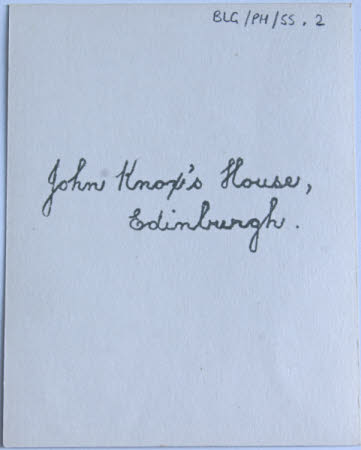 BLG/PH/SS.2
John Knox's House,
Edinburgh.